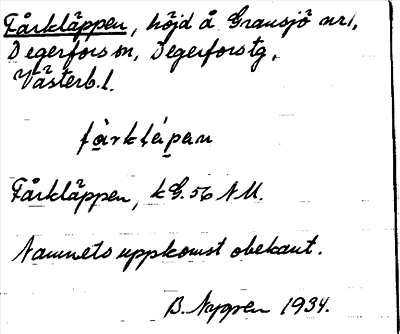 Fårkläppen, höjd å Gransjö nr 1,
Degerfors sn, Degerfors tg,
Västerb. l.
fàrklápan
Fårkläppen, k G. 56 N M.
Namnets uppkomst obekant.
B. Nygren 1934.